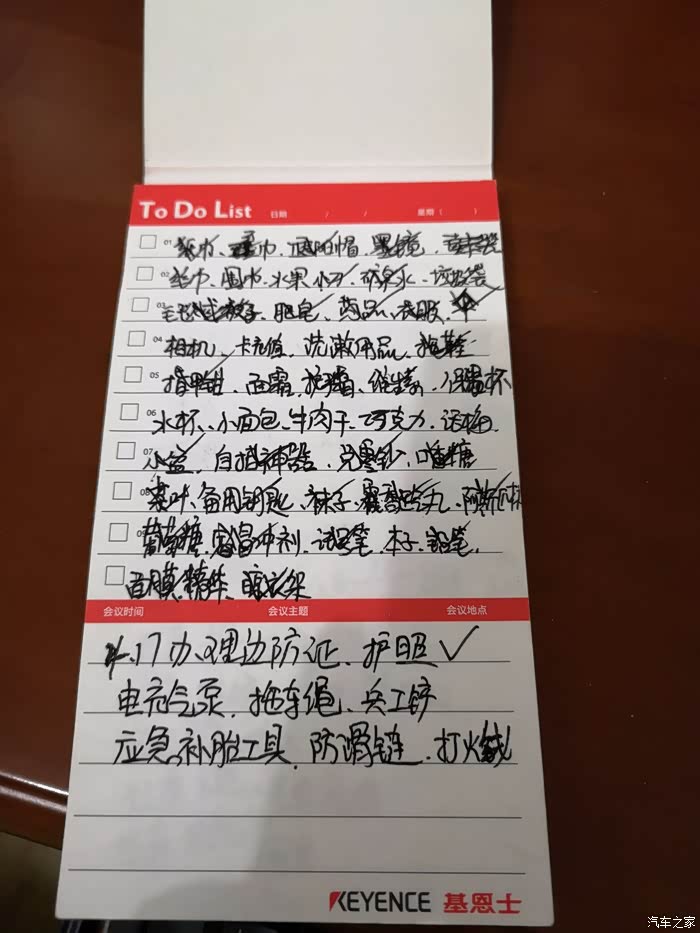 To Do List 日期 / / 星期（ ）
01 纸巾、 巾、遮阳帽、墨镜、
02 丝巾、围巾、水果小刀、矿泉水、垃圾袋
03 肥皂、药品、衣服、伞
04 相机、卡充值、洗漱用品、拖鞋
05 指甲钳、面霜、护 霜、维生素、保温杯
06 水杯、小面包、牛肉干、巧克力、话梅
07 小盆、自拍神器、兑零钞、喉糖
08 茶叶、备用钥匙、袜子、藿香 丸、阿斯匹林
葡萄糖、感冒冲剂、记号笔、本子、铅笔、
面膜、精华、晾衣架
会议时间 会议主题 会议地点
4.17办理边防证、护照✓
电充气泵、拖车绳、兵工铲
应急补胎工具、防滑链、打火机
KEYENCE 基恩士
汽车之家